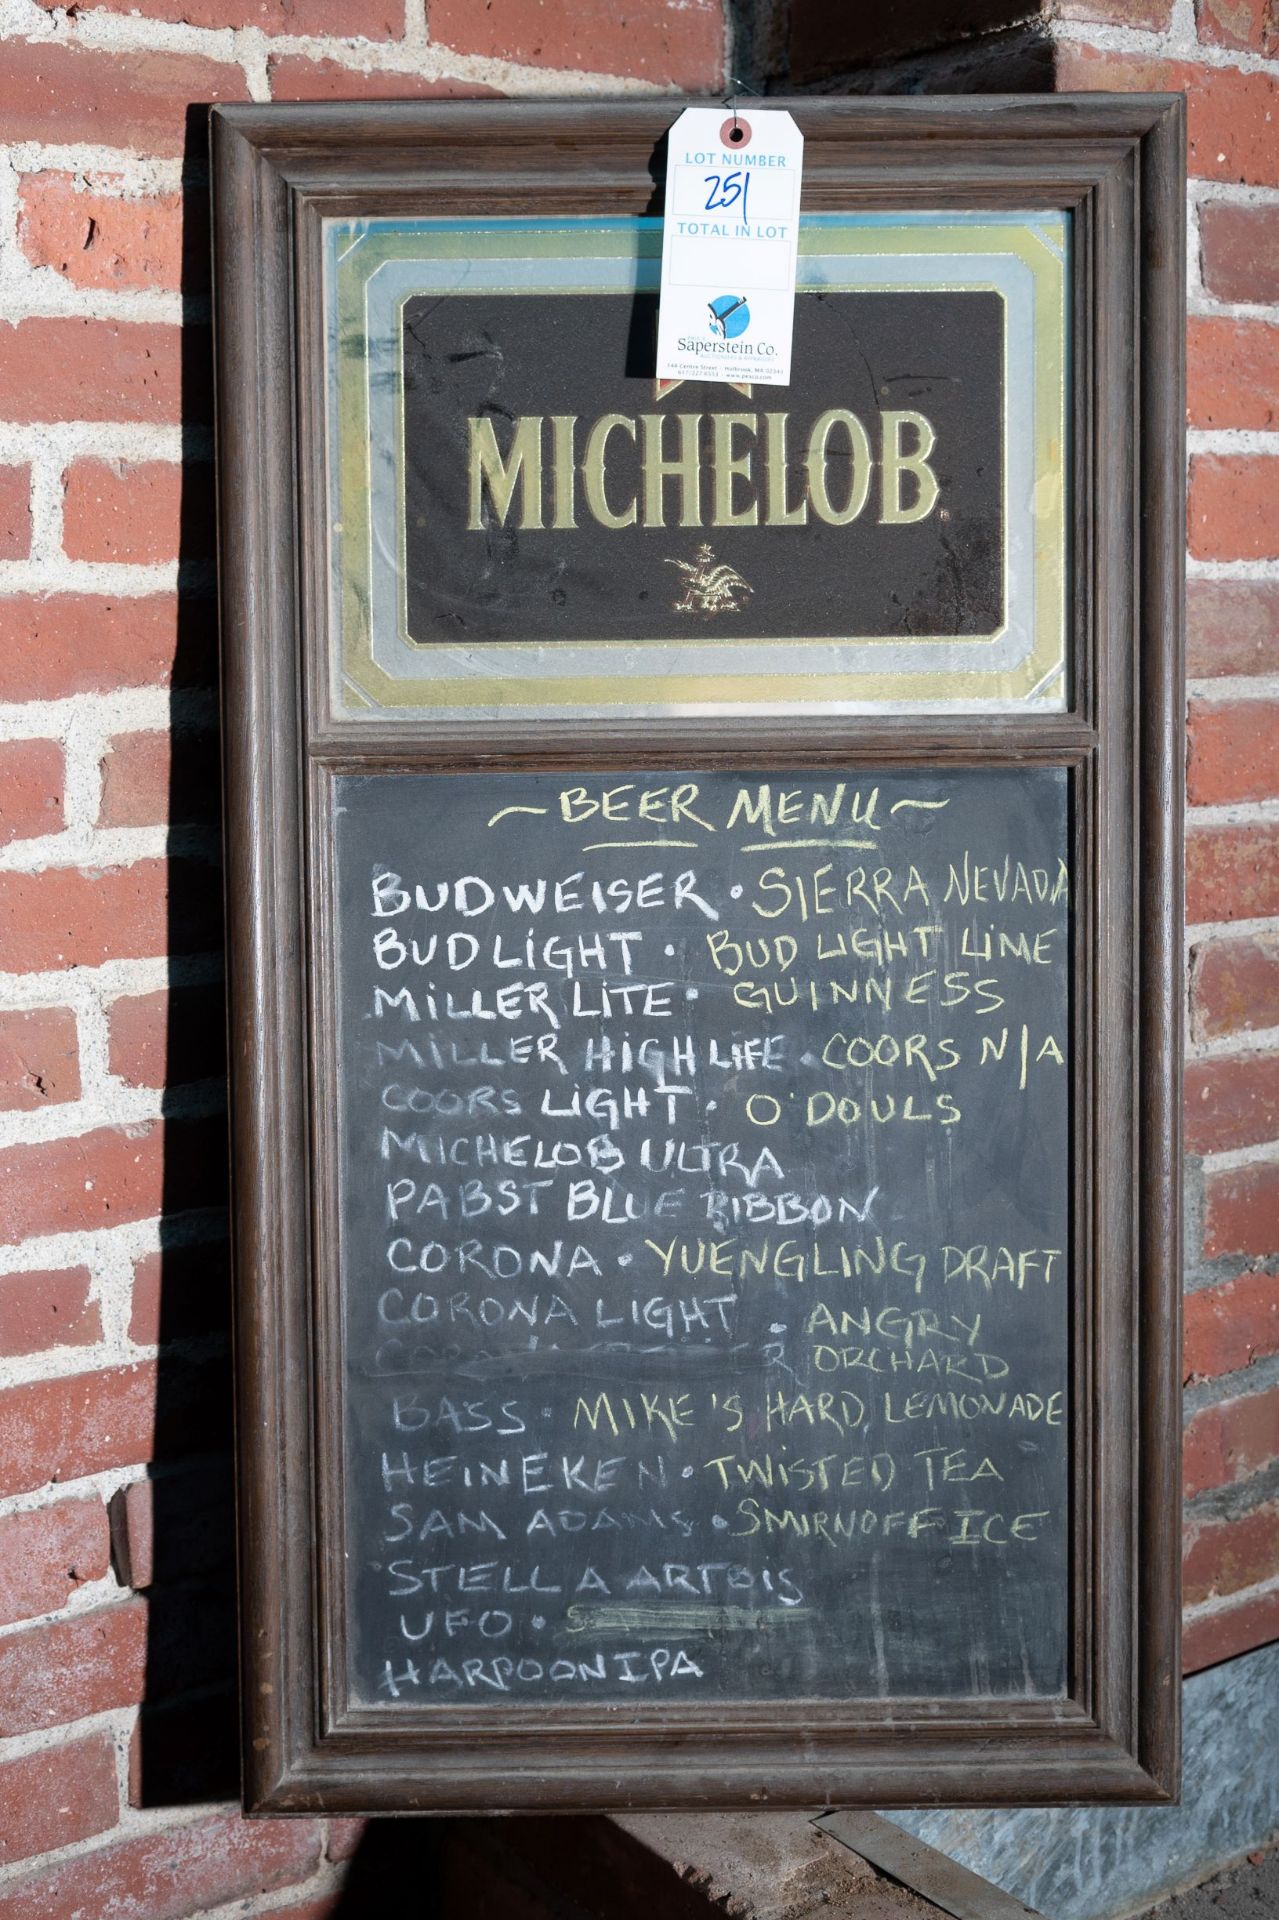 LOT NUMBER
251
TOTAL IN LOT
Saperstein Co.
AUCTIONEERS & APPRAISERS
144 Centre Street · Holbrook, MA 02343
617/227-6553 · www.pesco.com
MICHELOB
~BEER MENU~
BUDWEISER · SIERRA NEVADA
BUD LIGHT · BUD LIGHT LIME
MILLER LITE · GUINNESS
MILLER HIGH LIFE · COORS N/A
COORS LIGHT · O'DOULS
MICHELOB ULTRA
PABST BLUE RIBBON
CORONA · YUENGLING DRAFT
CORONA LIGHT · ANGRY
ORCHARD
BASS · MIKE'S HARD LEMONADE
HEINEKEN · TWISTED TEA
SAM ADAMS · SMIRNOFF ICE
STELLA ARTOIS
UFO ·
HARPOON IPA